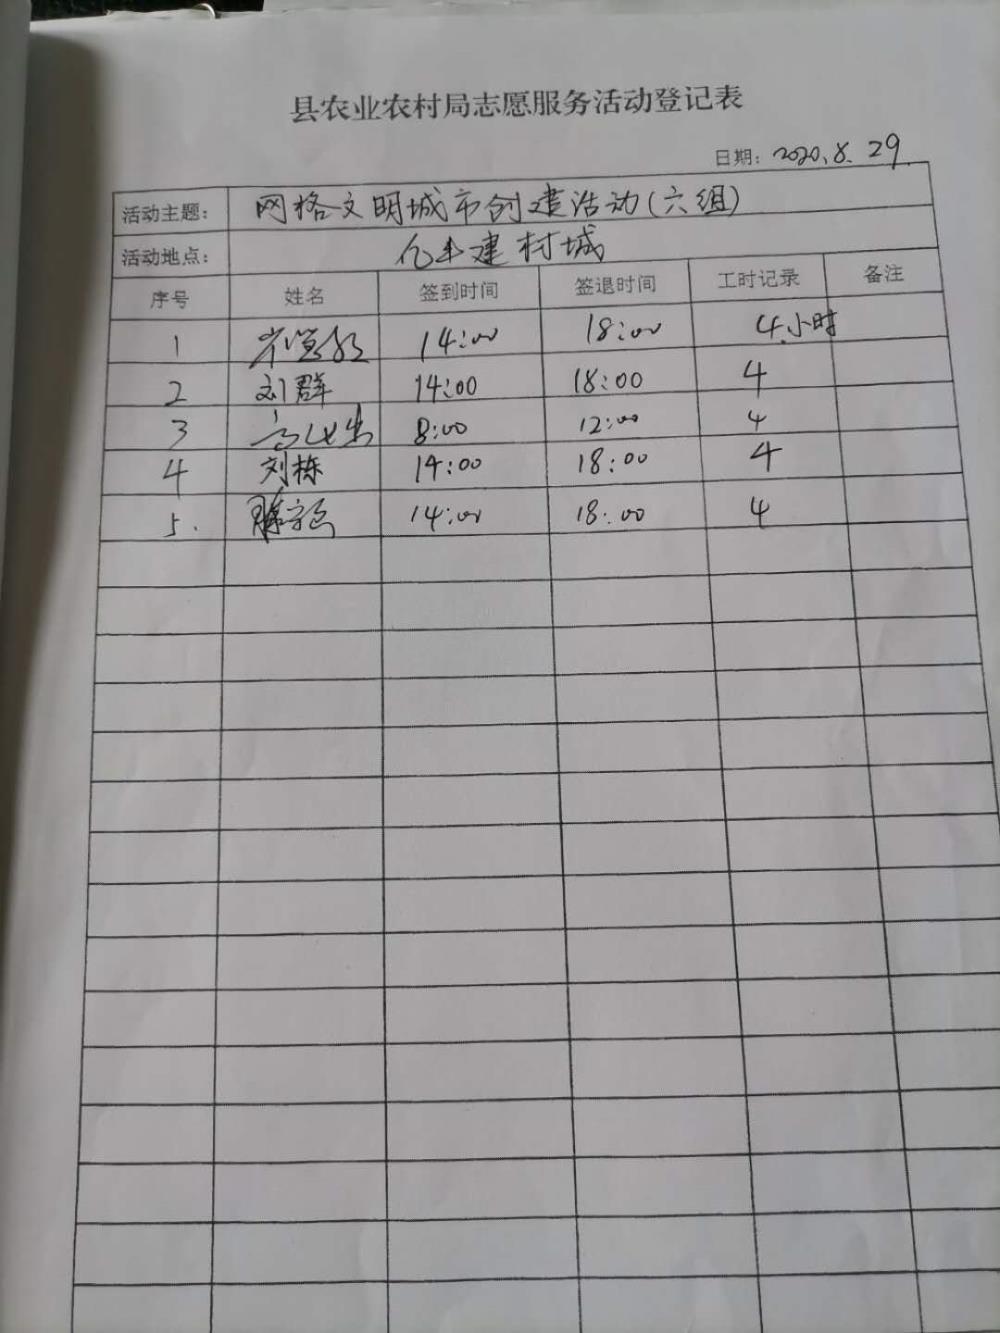 县农业农村局志愿服务活动登记表
日期: 2020.8.29.
活动主题: 网格文明城市创建活动(六组)
活动地点: 亿丰建材城
序号 姓名 签到时间 签退时间 工时记录 备注
1 14:00 18:00 4小时
2 刘群 14:00 18:00 4
3 8:00 12:00 4
4 刘栋 14:00 18:00 4
5. 14:00 18:00 4